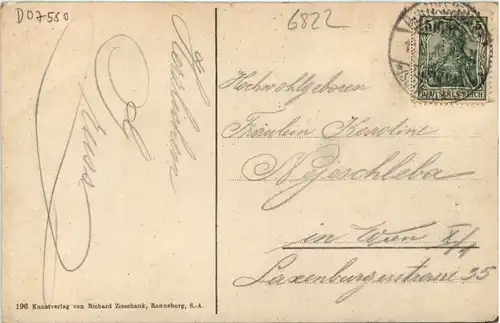 D07550
6822
Herzlichen
Kuss
DEUTSCHES REICH
Hochwohlgeboren
Fräulein Karoline
Nejeschleba
in Wien X/1
Laxenburgerstrasse 25
196 Kunstverlag von Richard Zieschank, Ronneburg, S.-A.